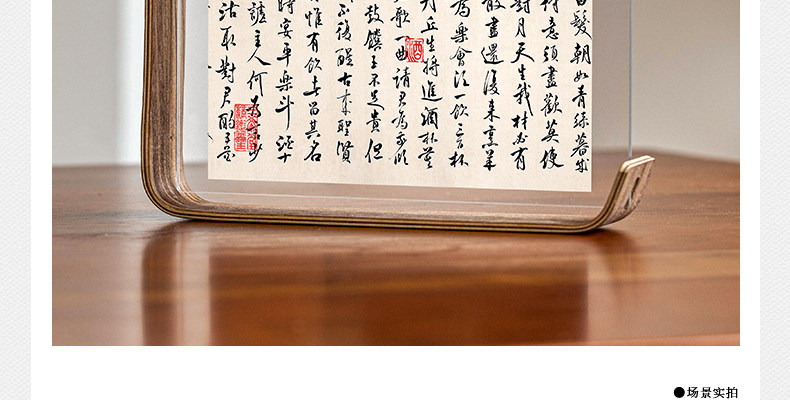 白髮朝如青絲暮成
得意須盡歡莫使
對月天生我材必有
散盡還復來烹羊
為樂會須一飲三百杯
丹丘生將進酒杯莫
歌一曲請君為我
鼓饌玉不足貴但
不復醒古來聖賢
惟有飲者留其名
時宴平樂斗酒十
謔主人何為言少
沽取對君酌五花
●场景实拍